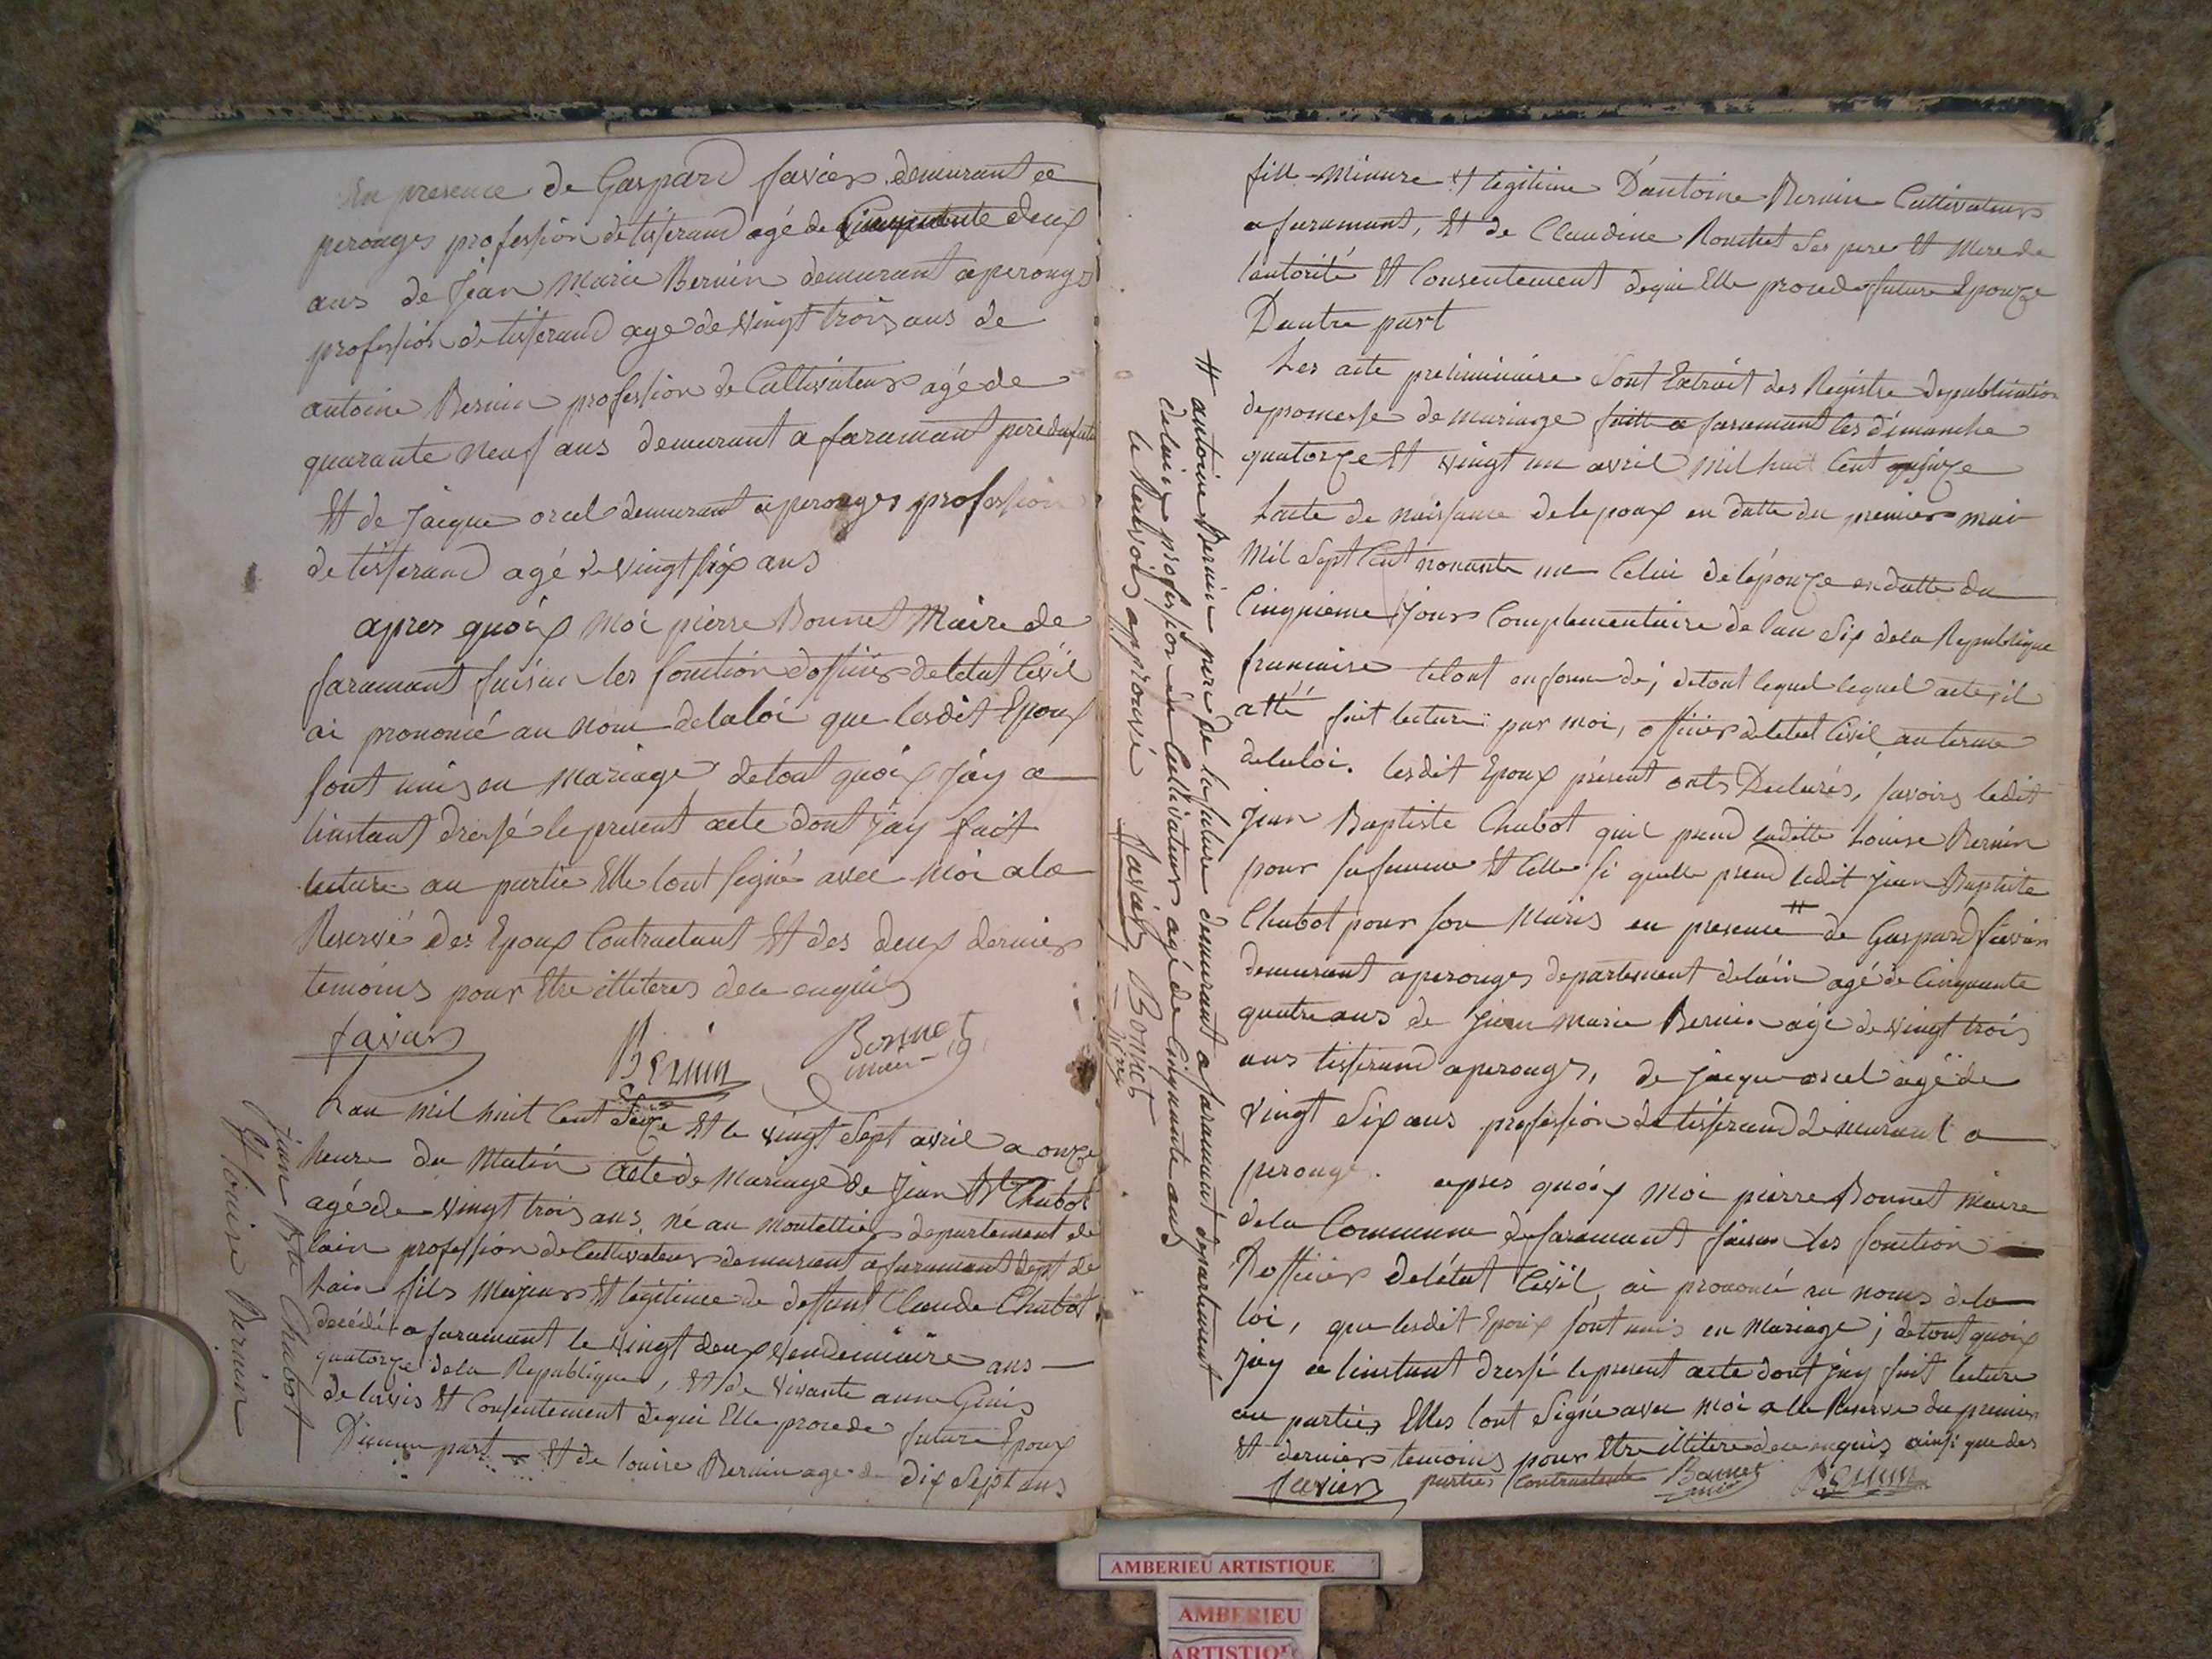 En presence de Gaspard favier demurant a
perouges profession de tisserand agé de Cinquante deux
ans de Jean Marie Bernin demurant a perouges
profession de tisserand age de vingt trois ans de
antoine Bernin profession de Cultivateur agé de
quarante neuf ans demurant a faramant pere du futur
Et de Jacque orcel demurant a perouges profession
de tisserand agé de vingt six ans
apres quoix Moi pierre Bonnet Maire de
faramant faisan les fonction dofficier deletat Civil
ai prononcé au nom delaloi que lesdit Epoux
sont unis en mariage, detout quoix Jáy a
linstant dressé le present acte dont Jay fait
lecture au partie Elle lont signé avec Moi ala
Reserve des Epoux Contractant Et des deux dernier
temoins pour Etre illiteres de ce enquis
favier Bernin Bonnet maire
Lan mil huit Cent Seize Et le vingt Sept avril a onze
heure du Matin acte de Mariage de Jean Bte Chabot
agé de vingt trois ans, né au montellier departement de
lain profession de Cultivateur demurant a faramant dept de
Lain fils Majeur Et légitime de deffunt Claude Chabot,
decédé a faramant le vingt deux vendemiaire ans
quatorze dela Republique, Et de vivante anne Ginis
de lavis Et Consentement de qui Elle procede future Epoux
Dunne part Et de louise Bernin age de dix Sept ans
Jean Bte Chabot
Et louise Bernin
fille Minure Et legitime Dántoine Bernin Cultivateur
a faramant, Et de Claudine Rouchet Ses pere Et Mere de
lautorité Et Consentement dequi Elle proced future Epouze
Dautre part
Les acte preliminaire Sont Extrait des Registre depublication
depromesse de mariage faitte a faramant les dimanche
quatorze Et vingt un avril Mil huit Cent seize
Lacte de naissance de lepoux en datte du premier mai
Mil Sept Cent nonante une Celui delépouze en datte du
Cinquieme Jour Complementaire de lan Six dela Republique
francaise letout en forme de; detout lequel lequel acte, il
a été fait lecture par moi, officier deletat Civil au terme
delaloi. lesdit Epoux présent onts Declarés, savoirs ledit
Jean Baptiste Chabot quil prend laditte Louise Bernin
pour sa femme Et Celle Ci quelle prend ledit Jean Baptiste
Chabot pour son Maris en presence # de Gaspard favier
demurant a perouges departement delain agé de Cinquante
quatre ans de Jean Marie Bernin agé de vingt trois
ans tisserand a perouges, de Jacque orcel agé de
vingt Six ans profession de tisserand demeurant a
perouge. apres quoix Moi pierre Bonnet Maire
dela Commune de faramant faisan les fonction
Dofficier deletat Civil, ai prononcé au noms dela
loi, que lesdit Epoux sont unis en Mariage; detout quoix
Jáy a linstant dressé lepresent acte dont Jay fait lecture
au parties Elles lont Signé avec Moi a la Reserve du premier
Et dernier temoins pour Etre illitere de ce enquis ainsi que des
parties Contractente
favier Bonnet maire Bernin
# antoine Bernin pere de la future demeurant a faramant departement
delain profession de Cultivateur agé de Cinquante ans
le Renvois approuvé favier Bonnet
AMBERIEU ARTISTIQUE
AMBERIEU
ARTISTIQUE